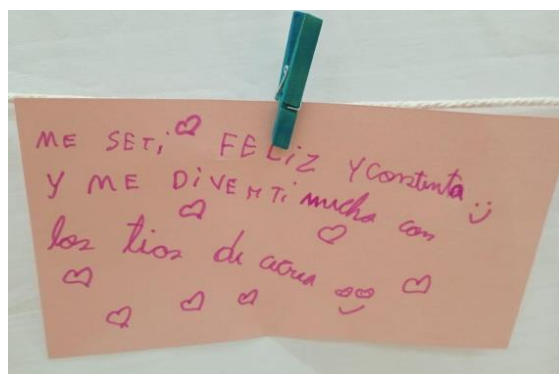 ME SETi FELiZ Y Contenta
Y ME DiVERTi mucho con
los tios de acrea